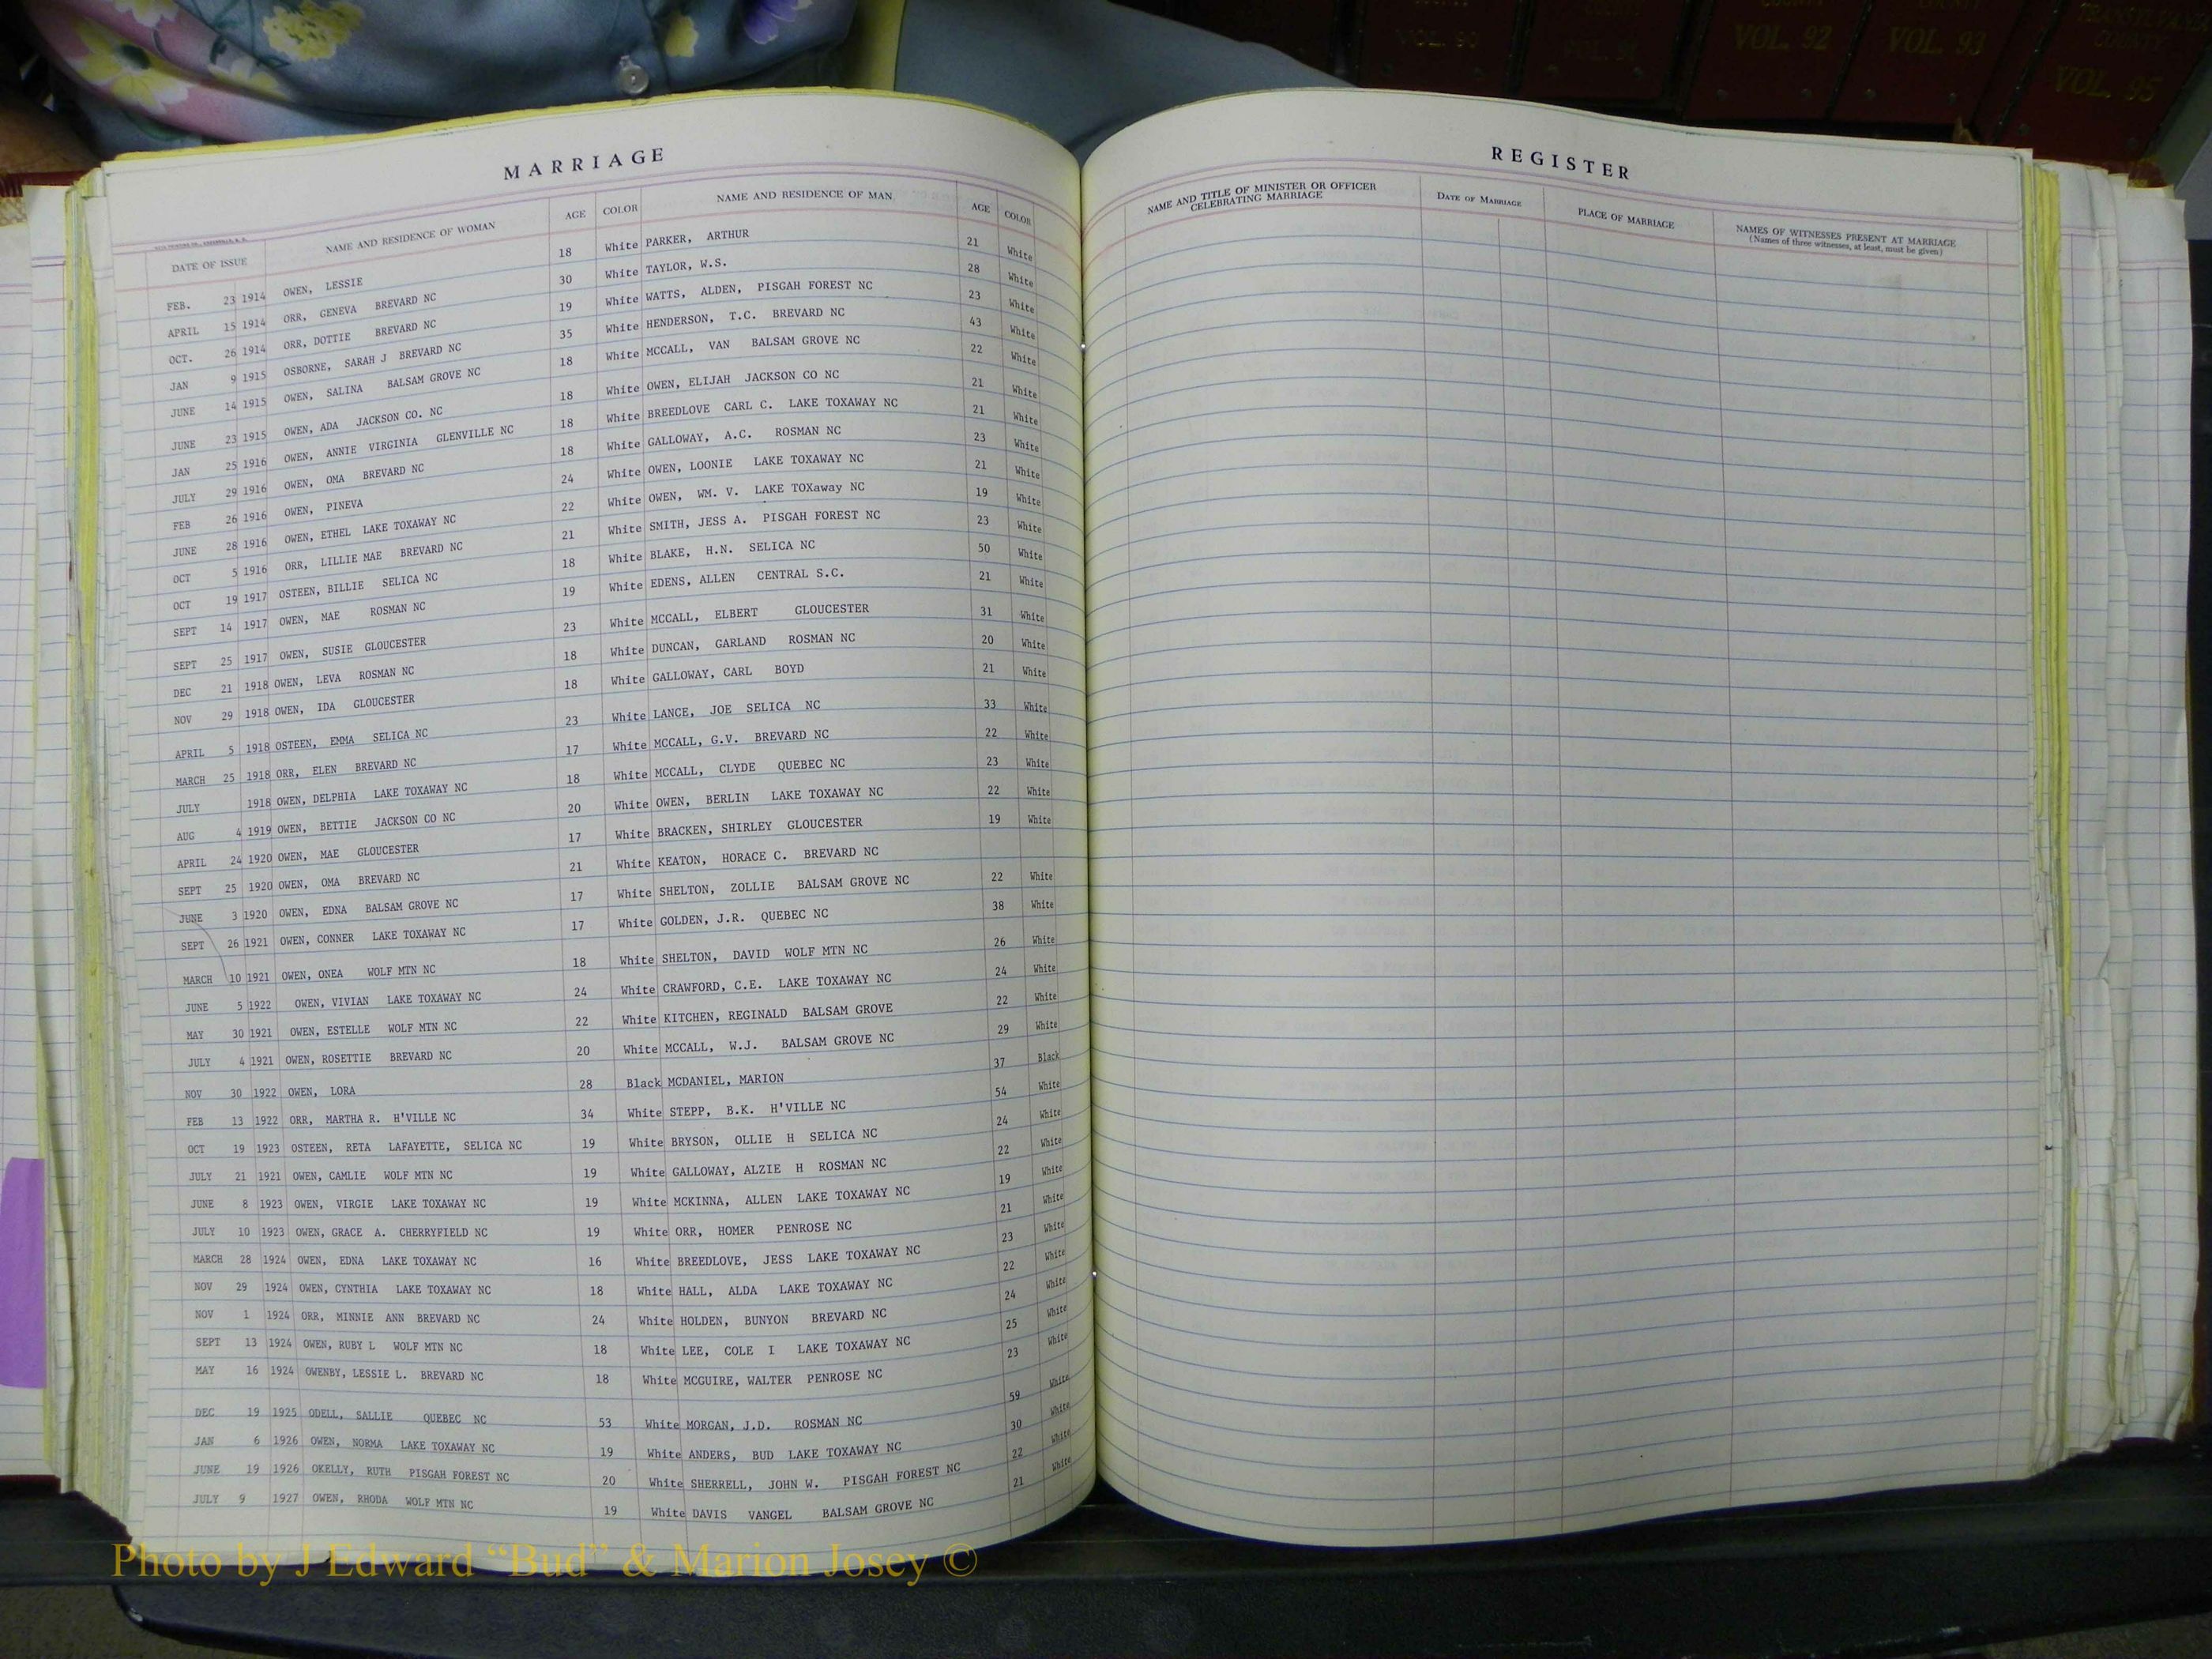 COUNTY
VOL. 90
VOL. 91
COUNTY
VOL. 92
COUNTY
VOL. 93
TRANSYLVANIA
COUNTY
VOL. 95
MARRIAGE
DATE OF ISSUE NAME AND RESIDENCE OF WOMAN AGE COLOR NAME AND RESIDENCE OF MAN AGE COLOR
FEB. 23 1914 OWEN, LESSIE 18 White PARKER, ARTHUR 21 White
APRIL 15 1914 ORR, GENEVA BREVARD NC 30 White TAYLOR, W.S. 28 White
OCT. 26 1914 ORR, DOTTIE BREVARD NC 19 White WATTS, ALDEN, PISGAH FOREST NC 23 White
JAN 9 1915 OSBORNE, SARAH J BREVARD NC 35 White HENDERSON, T.C. BREVARD NC 43 White
JUNE 14 1915 OWEN, SALINA BALSAM GROVE NC 18 White MCCALL, VAN BALSAM GROVE NC 22 White
JUNE 23 1915 OWEN, ADA JACKSON CO. NC 18 White OWEN, ELIJAH JACKSON CO NC 21 White
JAN 25 1916 OWEN, ANNIE VIRGINIA GLENVILLE NC 18 White BREEDLOVE CARL C. LAKE TOXAWAY NC 21 White
JULY 29 1916 OWEN, OMA BREVARD NC 18 White GALLOWAY, A.C. ROSMAN NC 23 White
FEB 26 1916 OWEN, PINEVA 24 White OWEN, LOONIE LAKE TOXAWAY NC 21 White
JUNE 28 1916 OWEN, ETHEL LAKE TOXAWAY NC 22 White OWEN, WM. V. LAKE TOXaway NC 19 White
OCT 5 1916 ORR, LILLIE MAE BREVARD NC 21 White SMITH, JESS A. PISGAH FOREST NC 23 White
OCT 19 1917 OSTEEN, BILLIE SELICA NC 18 White BLAKE, H.N. SELICA NC 50 White
SEPT 14 1917 OWEN, MAE ROSMAN NC 19 White EDENS, ALLEN CENTRAL S.C. 21 White
SEPT 25 1917 OWEN, SUSIE GLOUCESTER 23 White MCCALL, ELBERT GLOUCESTER 31 White
DEC 21 1918 OWEN, LEVA ROSMAN NC 18 White DUNCAN, GARLAND ROSMAN NC 20 White
NOV 29 1918 OWEN, IDA GLOUCESTER 18 White GALLOWAY, CARL BOYD 21 White
APRIL 5 1918 OSTEEN, EMMA SELICA NC 23 White LANCE, JOE SELICA NC 33 White
MARCH 25 1918 ORR, ELEN BREVARD NC 17 White MCCALL, G.V. BREVARD NC 22 White
JULY 1918 OWEN, DELPHIA LAKE TOXAWAY NC 18 White MCCALL, CLYDE QUEBEC NC 23 White
AUG 4 1919 OWEN, BETTIE JACKSON CO NC 20 White OWEN, BERLIN LAKE TOXAWAY NC 22 White
APRIL 24 1920 OWEN, MAE GLOUCESTER 17 White BRACKEN, SHIRLEY GLOUCESTER 19 White
SEPT 25 1920 OWEN, OMA BREVARD NC 21 White KEATON, HORACE C. BREVARD NC
JUNE 3 1920 OWEN, EDNA BALSAM GROVE NC 17 White SHELTON, ZOLLIE BALSAM GROVE NC 22 White
SEPT 26 1921 OWEN, CONNER LAKE TOXAWAY NC 17 White GOLDEN, J.R. QUEBEC NC 38 White
MARCH 10 1921 OWEN, ONEA WOLF MTN NC 18 White SHELTON, DAVID WOLF MTN NC 26 White
JUNE 5 1922 OWEN, VIVIAN LAKE TOXAWAY NC 24 White CRAWFORD, C.E. LAKE TOXAWAY NC 24 White
MAY 30 1921 OWEN, ESTELLE WOLF MTN NC 22 White KITCHEN, REGINALD BALSAM GROVE 22 White
JULY 4 1921 OWEN, ROSETTIE BREVARD NC 20 White MCCALL, W.J. BALSAM GROVE NC 29 White
NOV 30 1922 OWEN, LORA 28 Black MCDANIEL, MARION 37 Black
FEB 13 1922 ORR, MARTHA R. H'VILLE NC 34 White STEPP, B.K. H'VILLE NC 54 White
OCT 19 1923 OSTEEN, RETA LAFAYETTE, SELICA NC 19 White BRYSON, OLLIE H SELICA NC 24 White
JULY 21 1921 OWEN, CAMLIE WOLF MTN NC 19 White GALLOWAY, ALZIE H ROSMAN NC 22 White
JUNE 8 1923 OWEN, VIRGIE LAKE TOXAWAY NC 19 White MCKINNA, ALLEN LAKE TOXAWAY NC 19 White
JULY 10 1923 OWEN, GRACE A. CHERRYFIELD NC 19 White ORR, HOMER PENROSE NC 21 White
MARCH 28 1924 OWEN, EDNA LAKE TOXAWAY NC 16 White BREEDLOVE, JESS LAKE TOXAWAY NC 23 White
NOV 29 1924 OWEN, CYNTHIA LAKE TOXAWAY NC 18 White HALL, ALDA LAKE TOXAWAY NC 22 White
NOV 1 1924 ORR, MINNIE ANN BREVARD NC 24 White HOLDEN, BUNYON BREVARD NC 24 White
SEPT 13 1924 OWEN, RUBY L WOLF MTN NC 18 White LEE, COLE I LAKE TOXAWAY NC 25 White
MAY 16 1924 OWENBY, LESSIE L. BREVARD NC 18 White MCGUIRE, WALTER PENROSE NC 23 White
DEC 19 1925 ODELL, SALLIE QUEBEC NC 53 White MORGAN, J.D. ROSMAN NC 59 White
JAN 6 1926 OWEN, NORMA LAKE TOXAWAY NC 19 White ANDERS, BUD LAKE TOXAWAY NC 30 White
JUNE 19 1926 OKELLY, RUTH PISGAH FOREST NC 20 White SHERRELL, JOHN W. PISGAH FOREST NC 22 White
JULY 9 1927 OWEN, RHODA WOLF MTN NC 19 White DAVIS VANGEL BALSAM GROVE NC 21 White
REGISTER
NAME AND TITLE OF MINISTER OR OFFICER CELEBRATING MARRIAGE
DATE OF MARRIAGE
PLACE OF MARRIAGE
NAMES OF WITNESSES PRESENT AT MARRIAGE
(Names of three witnesses, at least, must be given)
Photo by J Edward “Bud” & Marion Josey ©